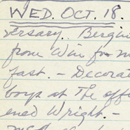 WED. OCT. 18.
rsary. Begin
from Win for m
fast. - Decorat
boys at the off
ened Wright. -